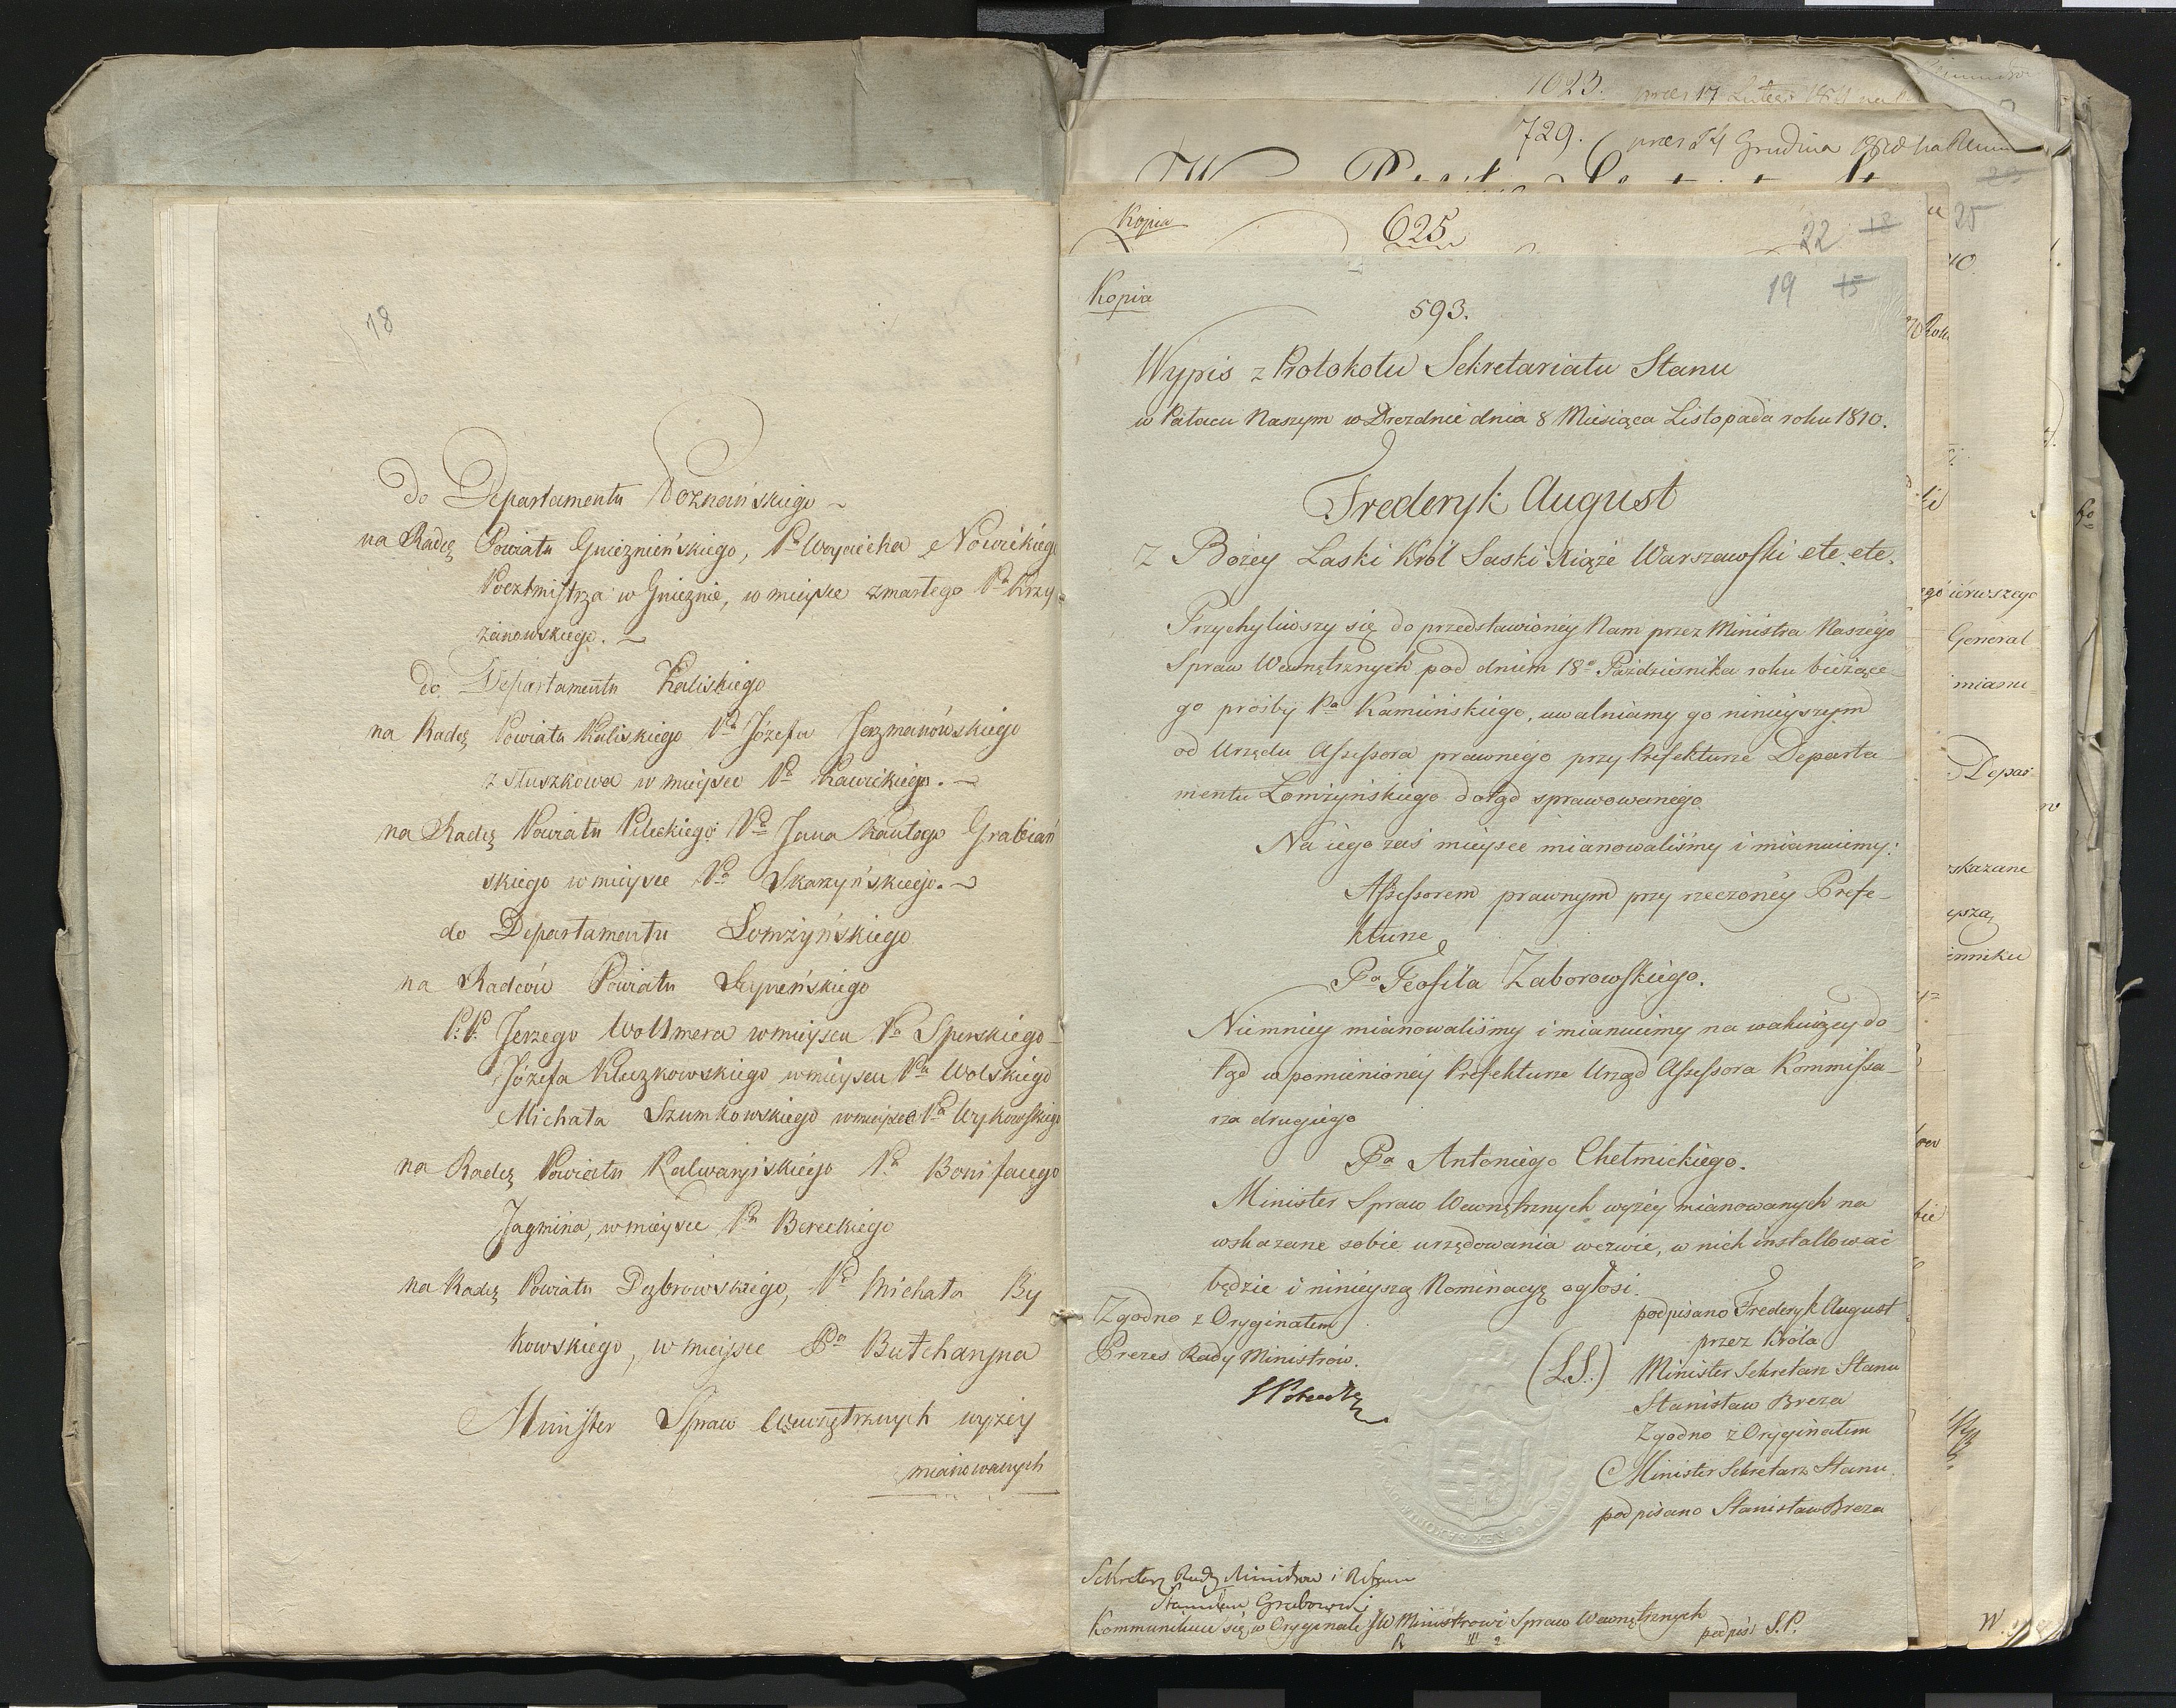 18
do Departamentu Poznańskiego ~
na Radcę Powiatu Gnieznieńskiego, Pa Woyciecha Nowickiego
Pocztmistrza w Gnieznie, w mieysce zmarłego Pa Krzy
żanowskiego. ~
do Departamentu Kaliskiego
na Radcę Powiatu Kaliskiego Pa Józefa Jerzmanowskiego
z Słuszkowa w mieysce Pa Kawickiego. ~
na Radcę Powiatu Pileckiego Pa Jana Kantego Grabiań
skiego w mieysce Pa Skarzyńskiego. ~
do Departamentu Łomżyńskiego
na Radców Powiatu Seyneńskiego
P.P. Jerzego Wollmera w mieyscu Pa Sperskiego
Józefa Kluzkowskiego w mieyscu Pa Wolskiego
Michała Szumkowskiego w mieysce Pa Wykowskiego
na Radcę Powiatu Kalwaryiskiego Pa Bonifacego
Jagmina, w mieysce Pa Bereckiego
na Radcę Powiatu Dąbrowskiego, Pa Michała By
kowskiego, w mieysce Pa Butchanyna
Minister Spraw Wewnętrznych wyżey
mianowanych
1023. prez 17 Lutego
729. prez 14 Grudnia
25
Kopia 625 22 18
Kopia 593. 19 15
Wypis z Protokołu Sekretariatu Stanu
w Pałacu Naszym w Dreznie dnia 8 Miesiąca Listopada roku 1810.
Frederyk August
z Bożey Łaski Król Saski Xiąże Warszawski etc. etc.
Przychyliwszy się do przedstawioney Nam przez Ministra Naszego
Spraw Wewnętrznych pod dniem 18o Pazdziernika roku bieżące-
go prośby Pa Kamińskiego, uwalniamy go ninieyszym
od Urzędu Assessora prawnego przy Prefekturze Departa-
mentu Łomżyńskiego dotąd sprawowanego
Na iego zaś mieysce mianowaliśmy i mianuiemy:
Assessorem prawnym przy rzeczoney Prefe-
kturze
Pa Teofila Zaborowskiego.
Niemniey mianowaliśmy i mianuiemy na wakuiący do-
tąd w pomienioney Prefekturze Urząd Assessora Kommissa-
rza drugiego
Pa Antoniego Chełmickiego.
Minister Spraw Wewnętrznych wyżey mianowanych na
wskazane sobie urzędowania wezwie, w nich installować
będzie i ninieyszą Nominacyę ogłosi.
Zgodno z Oryginałem
Prezes Rady Ministrów.
podpisano Frederyk August
przez Króla
(L.S.) Minister Sekretarz Stanu
Stanisław Breza
Zgodno z Oryginałem
Minister Sekretarz Stanu
podpisano Stanisław Breza
Sekretarz Rady Ministrow i Referen
Stanisław Grabowski
Kommunikuie się w Oryginale JW Ministrowi Spraw Wewnętrznych
podpis: S.P.